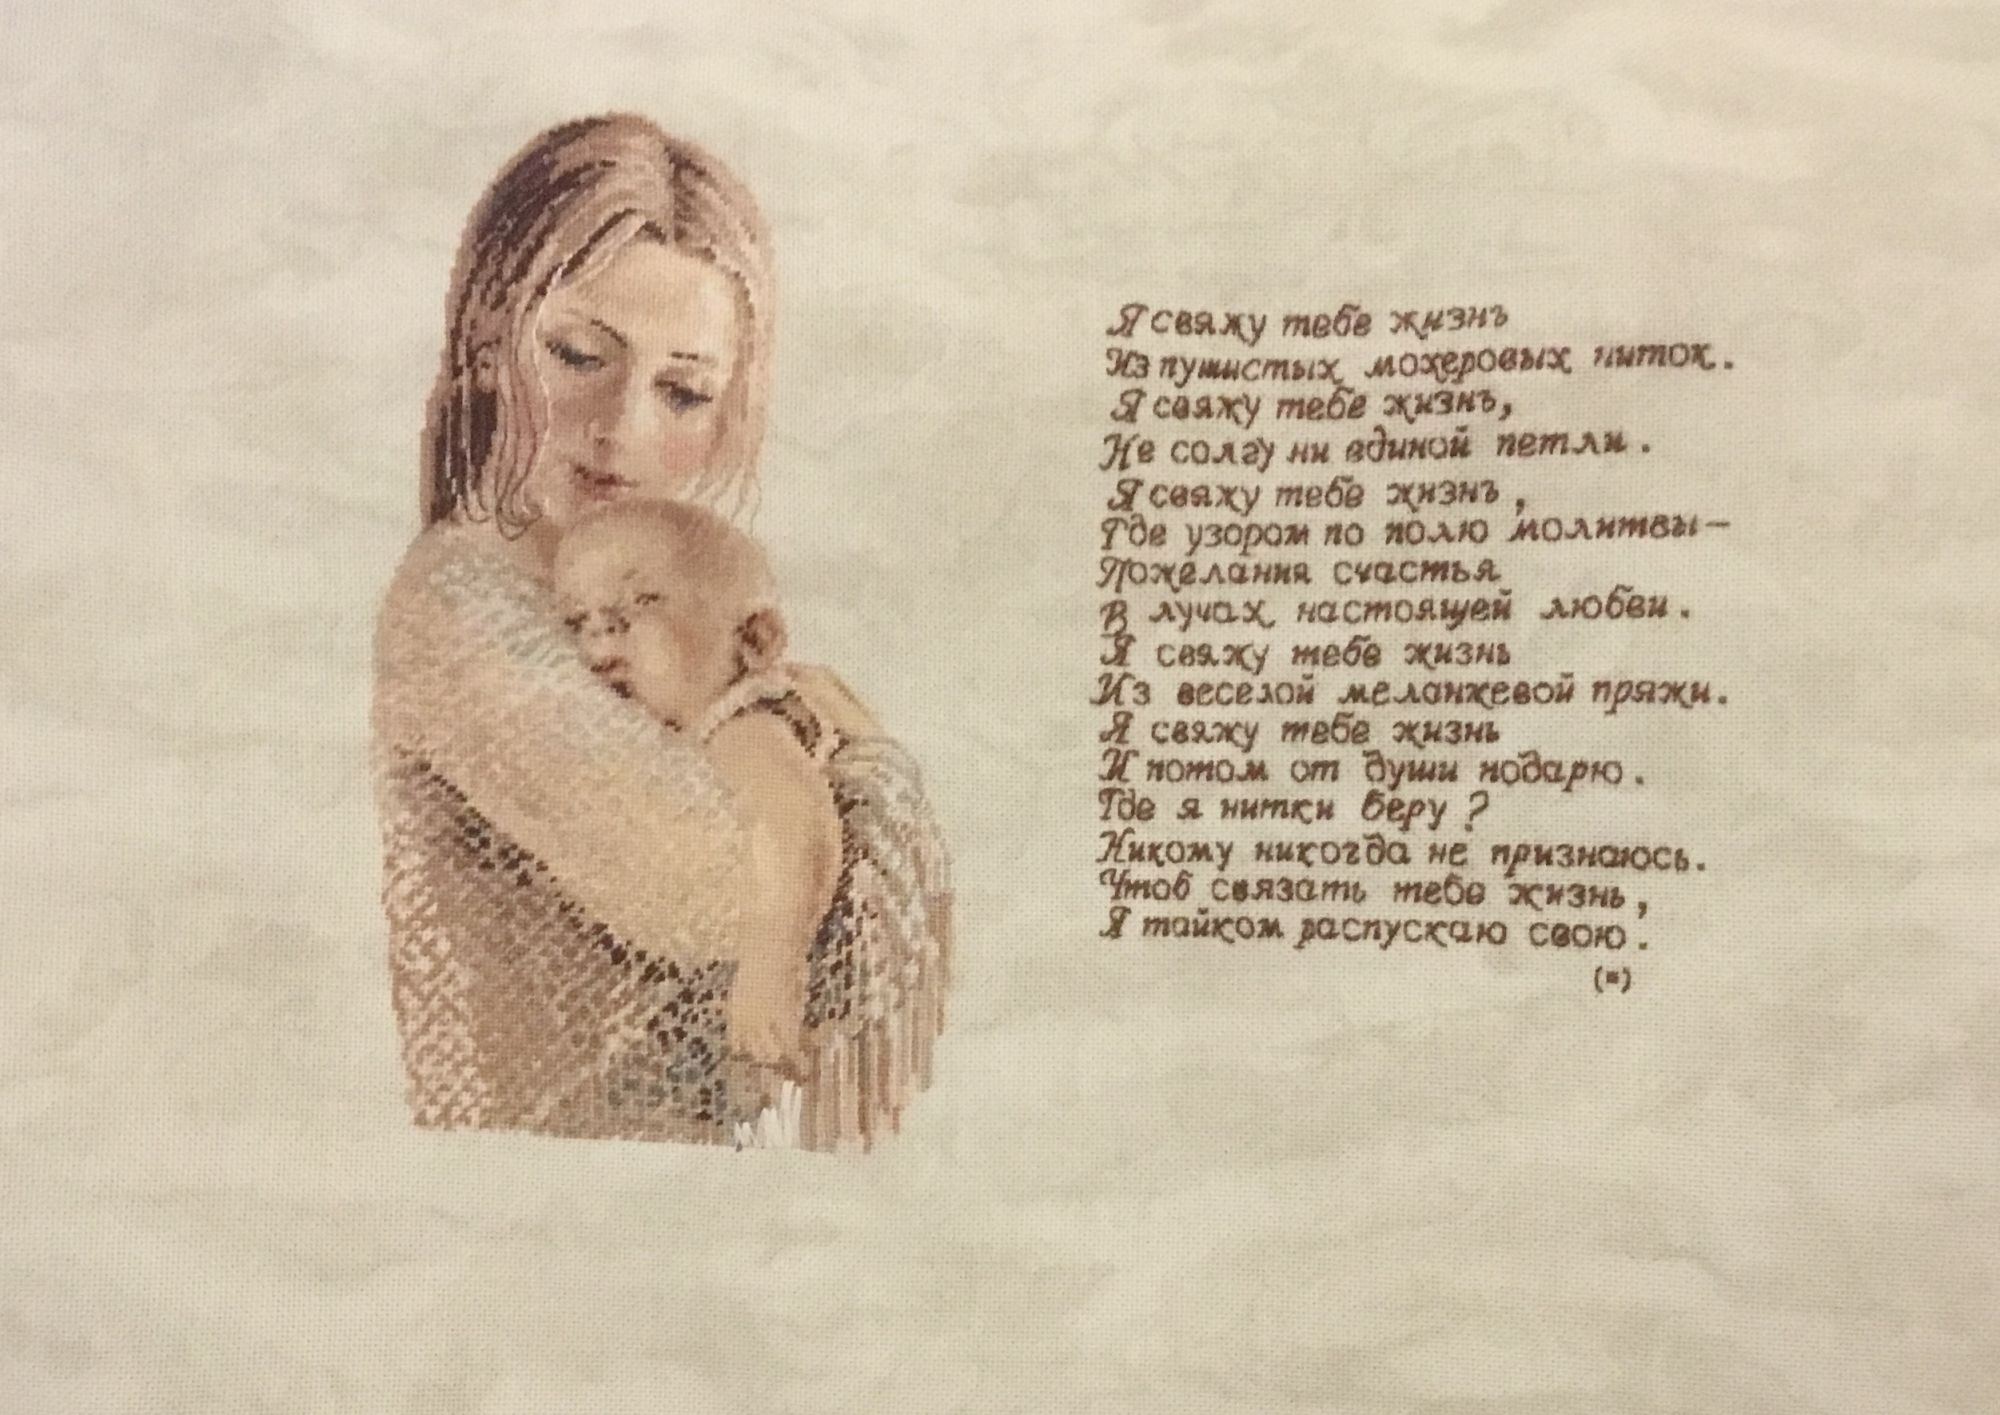 Я свяжу тебе жизнь
Из пушистых мохеровых ниток.
Я свяжу тебе жизнь,
Не солгу ни единой петли.
Я свяжу тебе жизнь,
Где узором по полю молитвы–
Пожелания счастья
В лучах настоящей любви.
Я свяжу тебе жизнь
Из веселой меланжевой пряжи.
Я свяжу тебе жизнь
И потом от души подарю.
Где я нитки беру?
Никому никогда не признаюсь.
Чтоб связать тебе жизнь,
Я тайком распускаю свою.